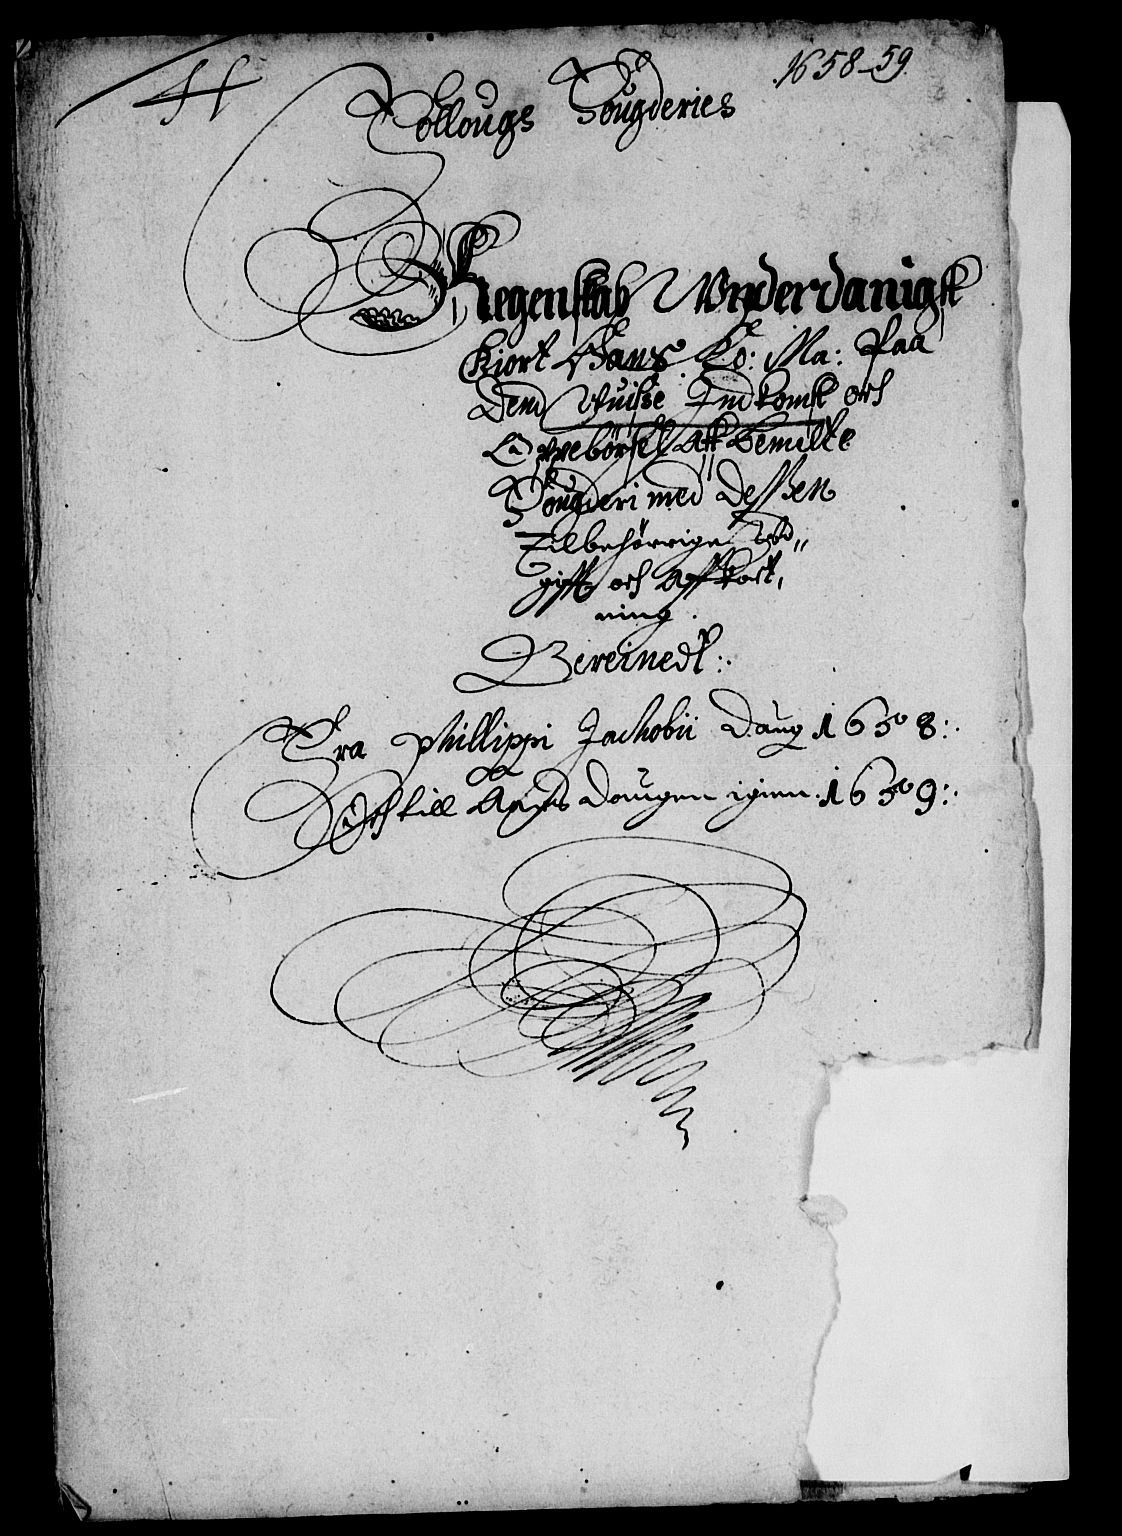 1658-59.
Follougs Fougderies
Regenskab Vnderdanigst
Giort Hans Ko: Ma: Paa
Dend Vuisse Indkomst och
Oppebörsel Aff bemelte
Fougderi med Dessen
Tilbehörrige Vd„
gifft och Affkort,
ning.
Bereinedt:.
Fra Phillippi Jachobii Daug 1658:.
Och till Aars Daugen igien. 1659:.